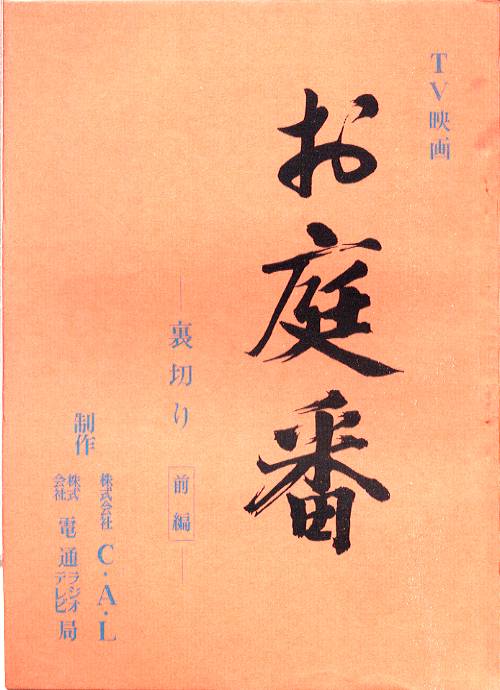 TV映画
お庭番
―裏切り 前編―
制作
株式会社 C・A・L
株式会社 電通ラジオテレビ局